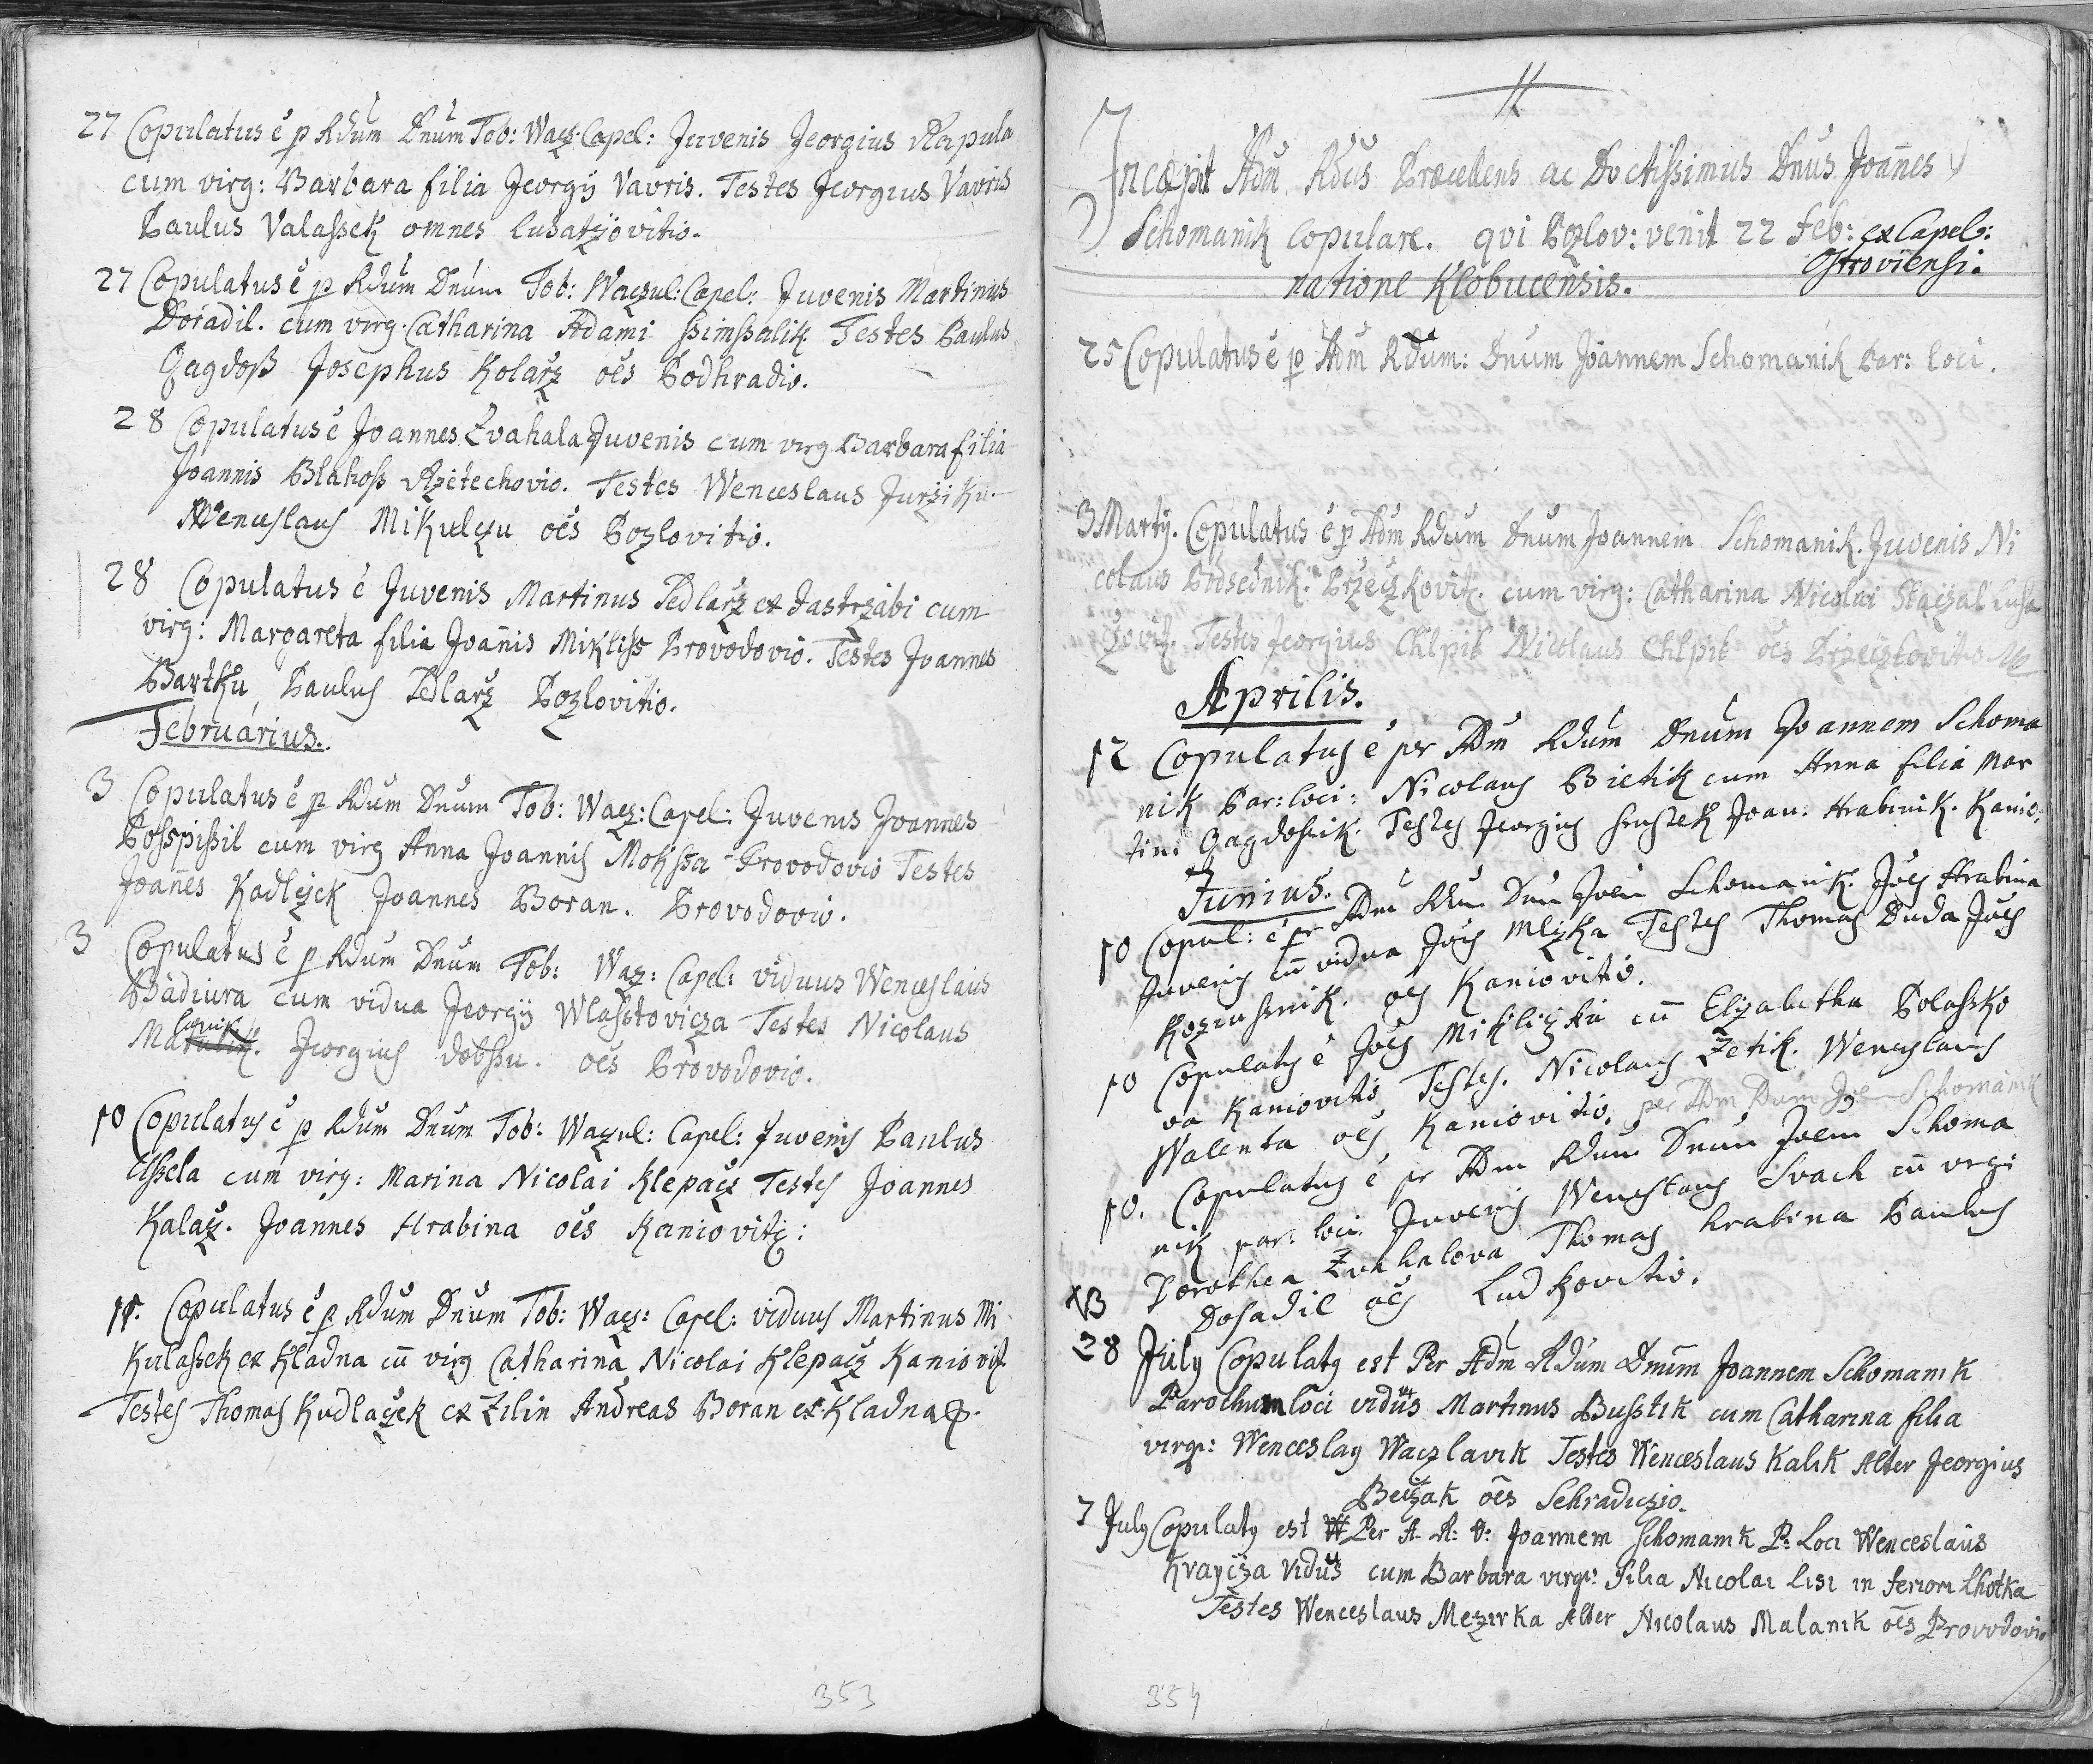 27 Copulatus é p Rdum Dnum Tob: Wacz: Capel: Juvenis Jeorgius Rzapula
cum virg: Barbara filia Jeorgÿ Vavris. Testes Jeorgius Vavris
Paulus Valassek omnes Lusatzovitio.
27 Copulatus é p Rdum Dnum Tob: Waczul: Capel: Juvenis Martinus
Doradil. cum virg. Catharina Adami Ssimssalik. Testes Paulus
Gagdoß Josephus Kolarz oēs Podhradio.
28 Copulatus é Joannes Zvahala Juvenis cum virg Barbara filia
Joannis Blahoss Rzetechovio. Testes Wenceslaus Jurziku.
Wenceslaus Mikulczu oēs Pozlovitio.
28 Copulatus é Juvenis Martinus Pedlarz ex Jastrzabi cum
virg: Margareta filia Joannis Mikliss Provodovio. Testes Joannes
Bartku, Paulus Pedlarz Pozlovitio.
Februarius.
3 Copulatus é p Rdum Dnum Tob: Wacz: Capel: Juvenis Joannes
Posspissil cum virg Anna Joannis Mokssa Provodovio Testes
Joannes Kadlczek Joannes Boran. Provodovio.
3 Copulatus é p Rdum Dnum Tob: Wacz: Capel: viduus Wenceslaus
Badiura cum vidua Jeorgÿ Wlasstovicza Testes Nicolaus
Malanik. Jeorgius dobssu. oēs Provodovio.
10 Copulatus é p Rdum Dnum Tob: Waczul: Capel: Juvenis Paulus
Cssela cum virg: Marina Nicolai Klepacz Testes Joannes
Kalacz. Joannes Hrabina oēs Kaniovitz:
11. Copulatus é p Rdum Dnum Tob: Wacz: Capel: viduus Martinus Mi
kulassek ex Kladna cū virg Catharina Nicolai Klepacz Kaniovit.
Testes Thomas Kudlaczek ex Zilin Andreas Boran ex Kladna
353
Incœpit Adm Rdus Præcellens ac Doctissimus Dnus Joannes
Schomanik Copulare. qvi Pozlov: venit 22 Feb: ex Capel:
Ostroviensi.
natione Klobucensis.
25 Copulatus é p Adm Rdum: Dnum Joannem Schomanik Par: loci.
3 Martÿ. Copulatus é p Adm Rdum Dnum Joannem Schomanik. Juvenis Ni
colaus Podsednik. Brzeczkovitz. cum virg: Catharina Nicolai Staczal Lusa
czovitz. Testes Jeorgius Chlpik Nicolaus Chlpik oēs Brzeczkovitio
Aprilis.
12 Copulatus é pr Adm Rdum Dnum Joannem Schoma
nik Par: loci: Nicolaus Bietik cum Anna filia Mar
tini Gagdossik. Testes Jeorgius Joan: Hrabinik. Kanio:
Junius.
10 Copul: é pr Adm Rdm Dnm Joem Schomanik. Joēs Hrabina
Juvenis cū vidua Joēs Mlczka Testes Thomas Duda Joēs
oēs Kaniovitio.
10 Copulatus é Joēs Mikliczku cū Elizabetha Polassko
va Kaniovitio Testes. Nicolaus Zetik. Wenceslaus
Walenta oēs Kaniovitio. per Adm Rdum Joem Schomanik
10. Copulatus é pr Adm Rdum Dnum Joem Schoma
nik par: loci. Juvenis Wenceslaus Svach cū virgi
Dorothea Zvahalova Thomas hrabina Paulus
NB Dosadil oēs Ludkovitio.
28 July Copulatus est Per Adm Rdum Dnum Joannem Schomanik
Parochum loci viduus Martinus Busstik cum Catharina filia
virg: Wenceslay Waczlavik Testes Wenceslaus Kalik Alter Jeorgius
Beczak oēs Sehradiczio.
7 July Copulatus est Per A. R: D: Joannem Schomanik P: Loci Wenceslaus
Kraycza Viduus cum Barbara virg: Filia Nicolai Lisi in feriori Lhotka
Testes Wenceslaus Mezirka Alter Nicolaus Malanik oēs Provodovio
354